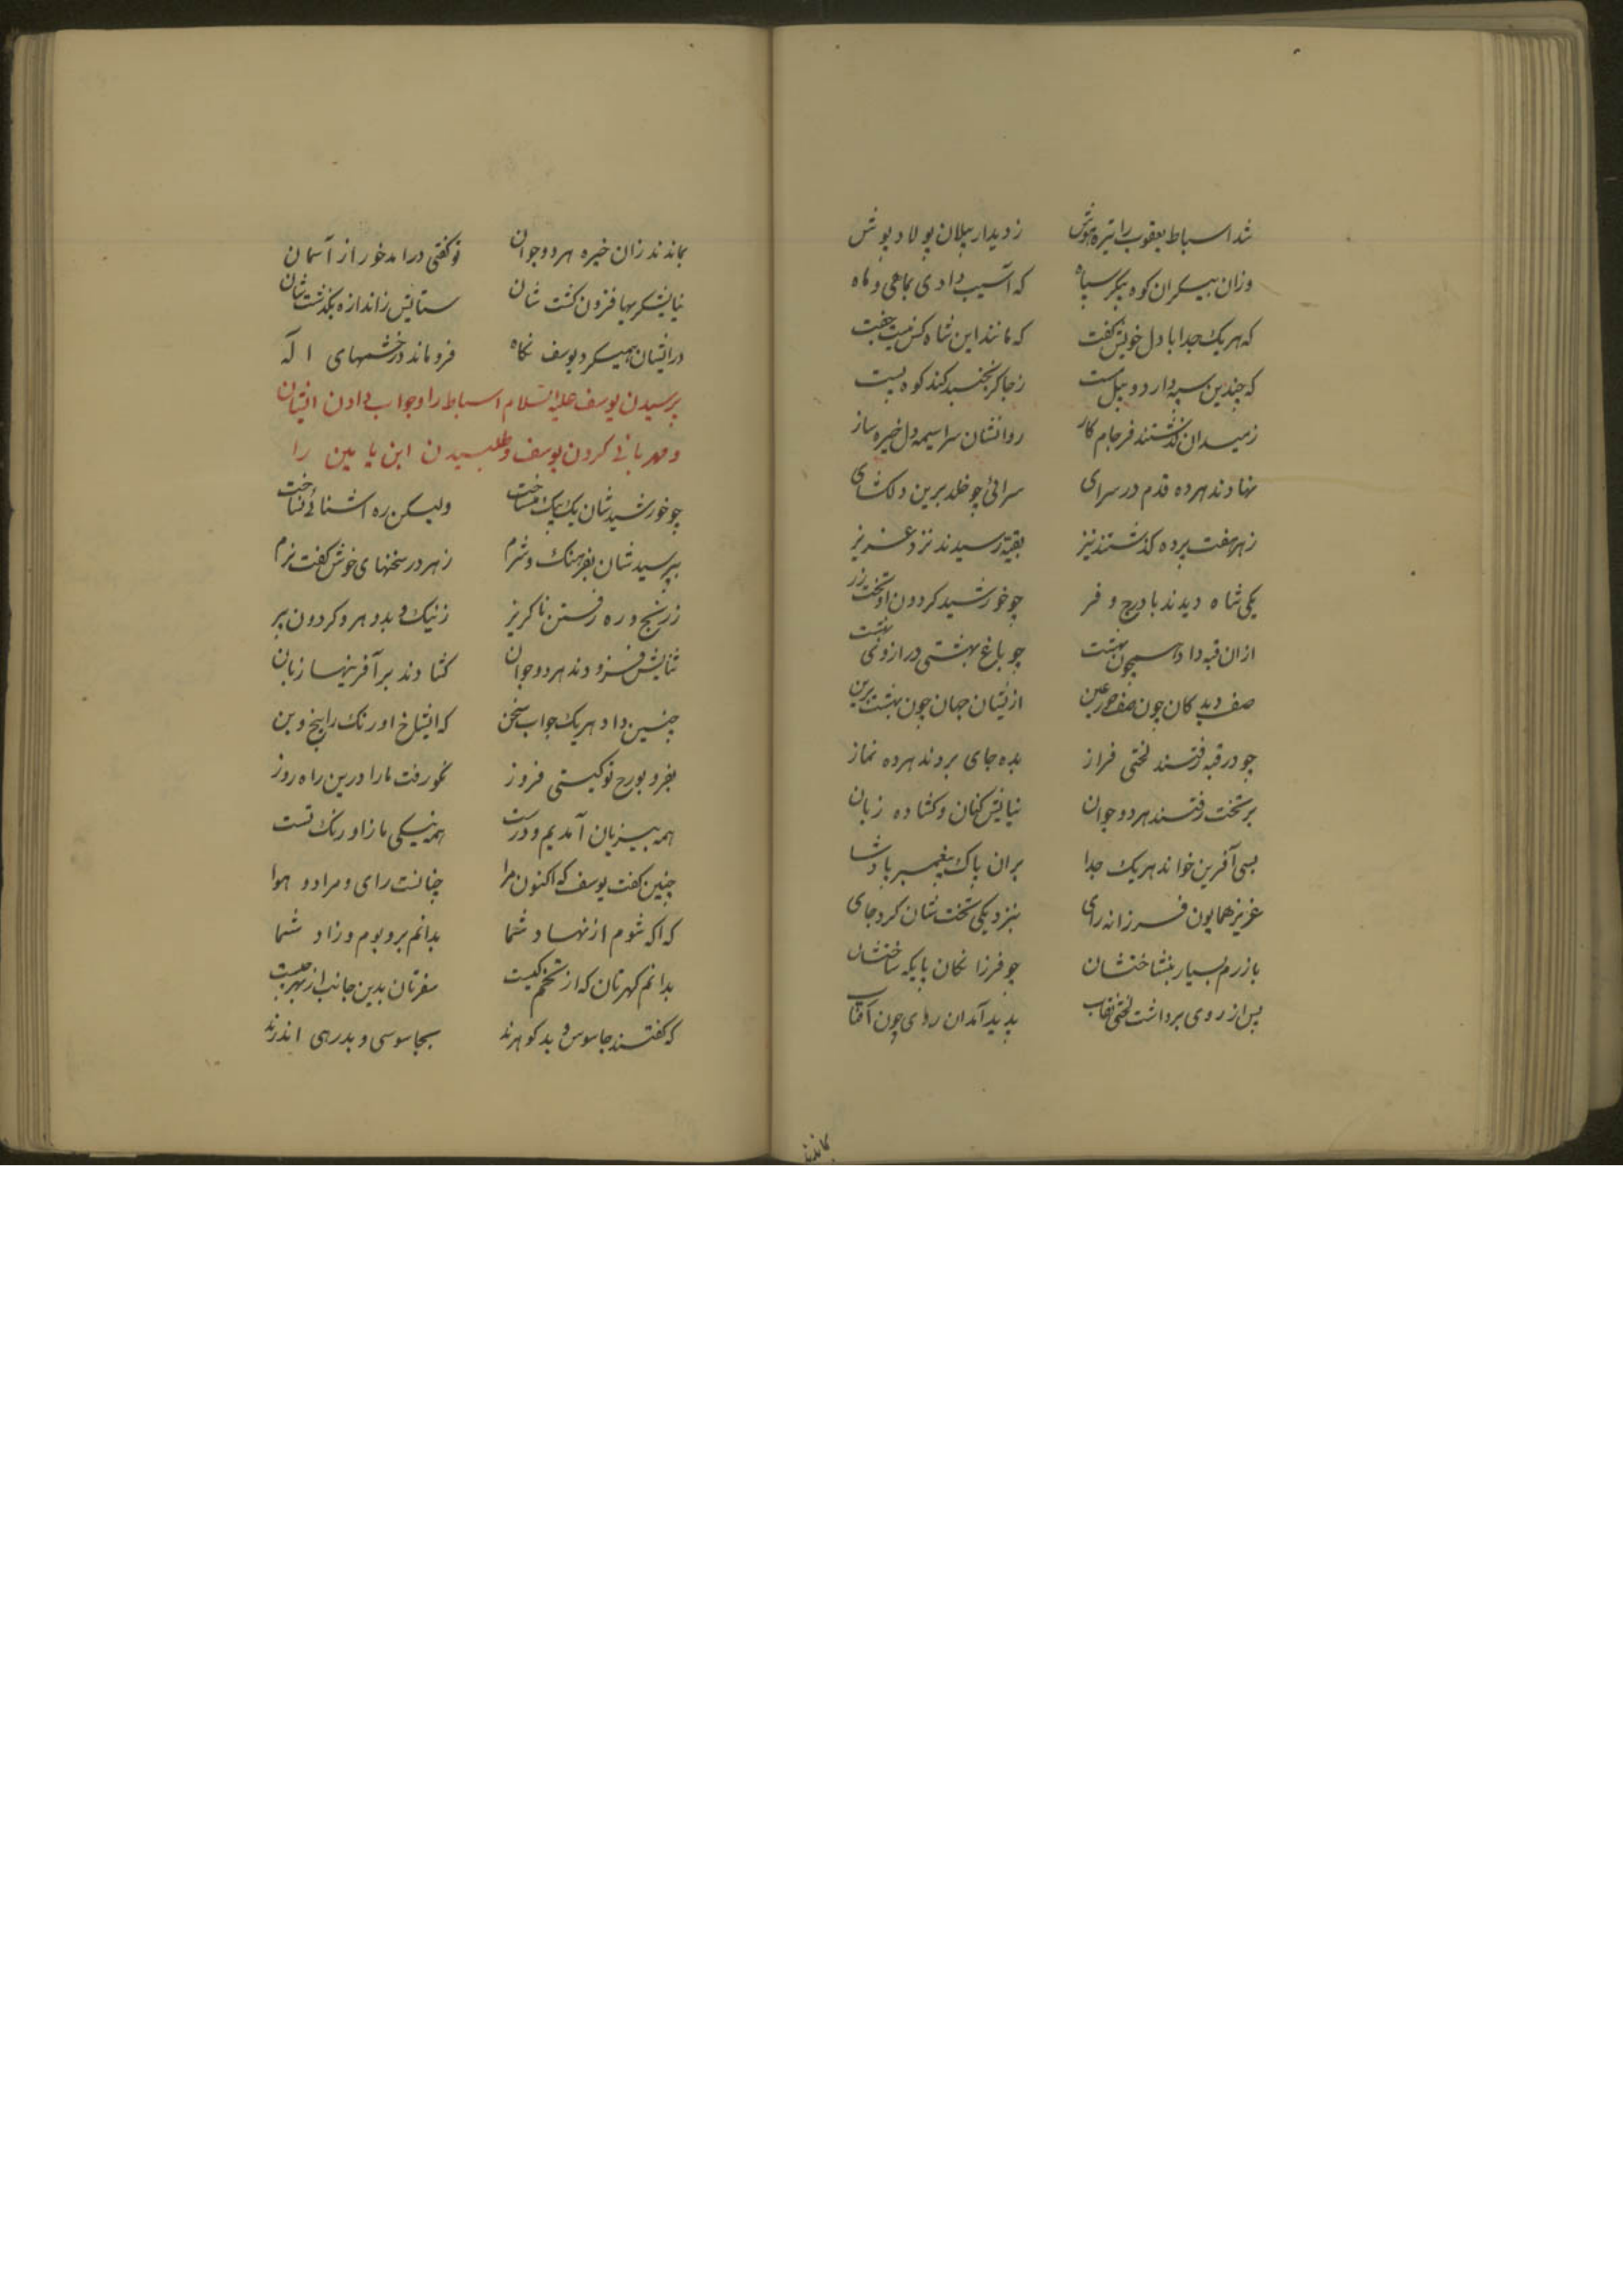 شد اسباط یعقوب را تیره هوش زدیدار پیلان پولاد پوش
وزان بیکران کوه پیکر سپاه که آسیب دادی بماهی و ماه
که هریک جدا با دل خویش گفت که مانند این شاه کس نیست جفت
که چندین سپه دارد و پیل مست زجا گر بجنبد کند کوه پست
زمیدان گذشتند فرجام کار روانشان سراسیمه دل خیره ساز
نهادند هرده قدم در سرای سرائی چو خلد برین دلکشای
زهر هفت پرده گذشتند نیز بقبه رسیدند نزد عزیز
یکی شاه دیدند با درج و فر چو خورشید کردون او تخت زر
ازان قبه داد چون بهشت چو باغ بهشتی در ازو
صف دیدکان چون صف حور عین ازیشان جهان چون بهشت برین
چو در قبه رفتند لختی فراز بده جای بردند هرده نماز
بر تخت رفتند هر دو جوان نیایش کنان و کشاده زبان
بسی آفرین خواند هریک جدا بران پاک پیغمبر پادشا
عزیز همایون فرزانه رای بنزدیکی تخت شان کرد جای
بازرم بسیار بنشاختشان چو فرزانکان پایکه ساختشان
پس از روی برداشت لختی نقاب پدید آمد آن روی چون آفتاب
بماندند
بماندند زان خیره هر دو جوان تو کفتی درامد خور از آسمان
نیایشکریها فزون کشت شان ستایش زاندازه بگذشت شان
درایشان همیکرد یوسف نکاه فرو ماند در خشمهای اله
پرسیدن یوسف علیه السلام اسباط را و جواب دادن ایشان
و مهربانی کردن یوسف و طلبیدن ابن یامین را
چو خورشید شان یک بیک شناخت ولیکن ره اشنائی نساخت
بپرسید شان بفرهنک و شرم زهر در سخنهای خوش کفت نرم
زرنج و ره رفتن ناکریز زنیک و بد و هر و کردون پر
ثنایش فزودند هر دو جوان کشادند بر آفرینها زبان
چنین داد هریک جواب سخن که ای شاخ اورنک را بیخ و بن
بفر و بورج تو کیتی فروز نکو رفت مارا درین راه روز
همه بیزیان آمدیم و درست همه نیکی ما زاورنک تست
چنین کفت یوسف که اکنون مرا چنانست رای و مراد و هوا
که اکه شوم از نهاد شما بدانم بر و بوم و زاد شما
بدانم کهرتان که از تخم کیست سفرتان بدین جانب از بهر چیست
که کفتند جاسوس و بد کوهرند بجاسوسی و بدرهی اندرند